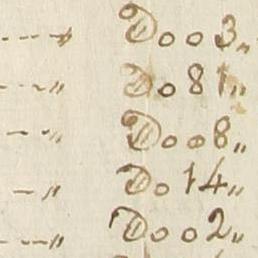 ---〃 Do 03〃
---〃 Do 81〃
--〃 Do 08〃
-〃 Do 14〃
---〃 Do 02〃